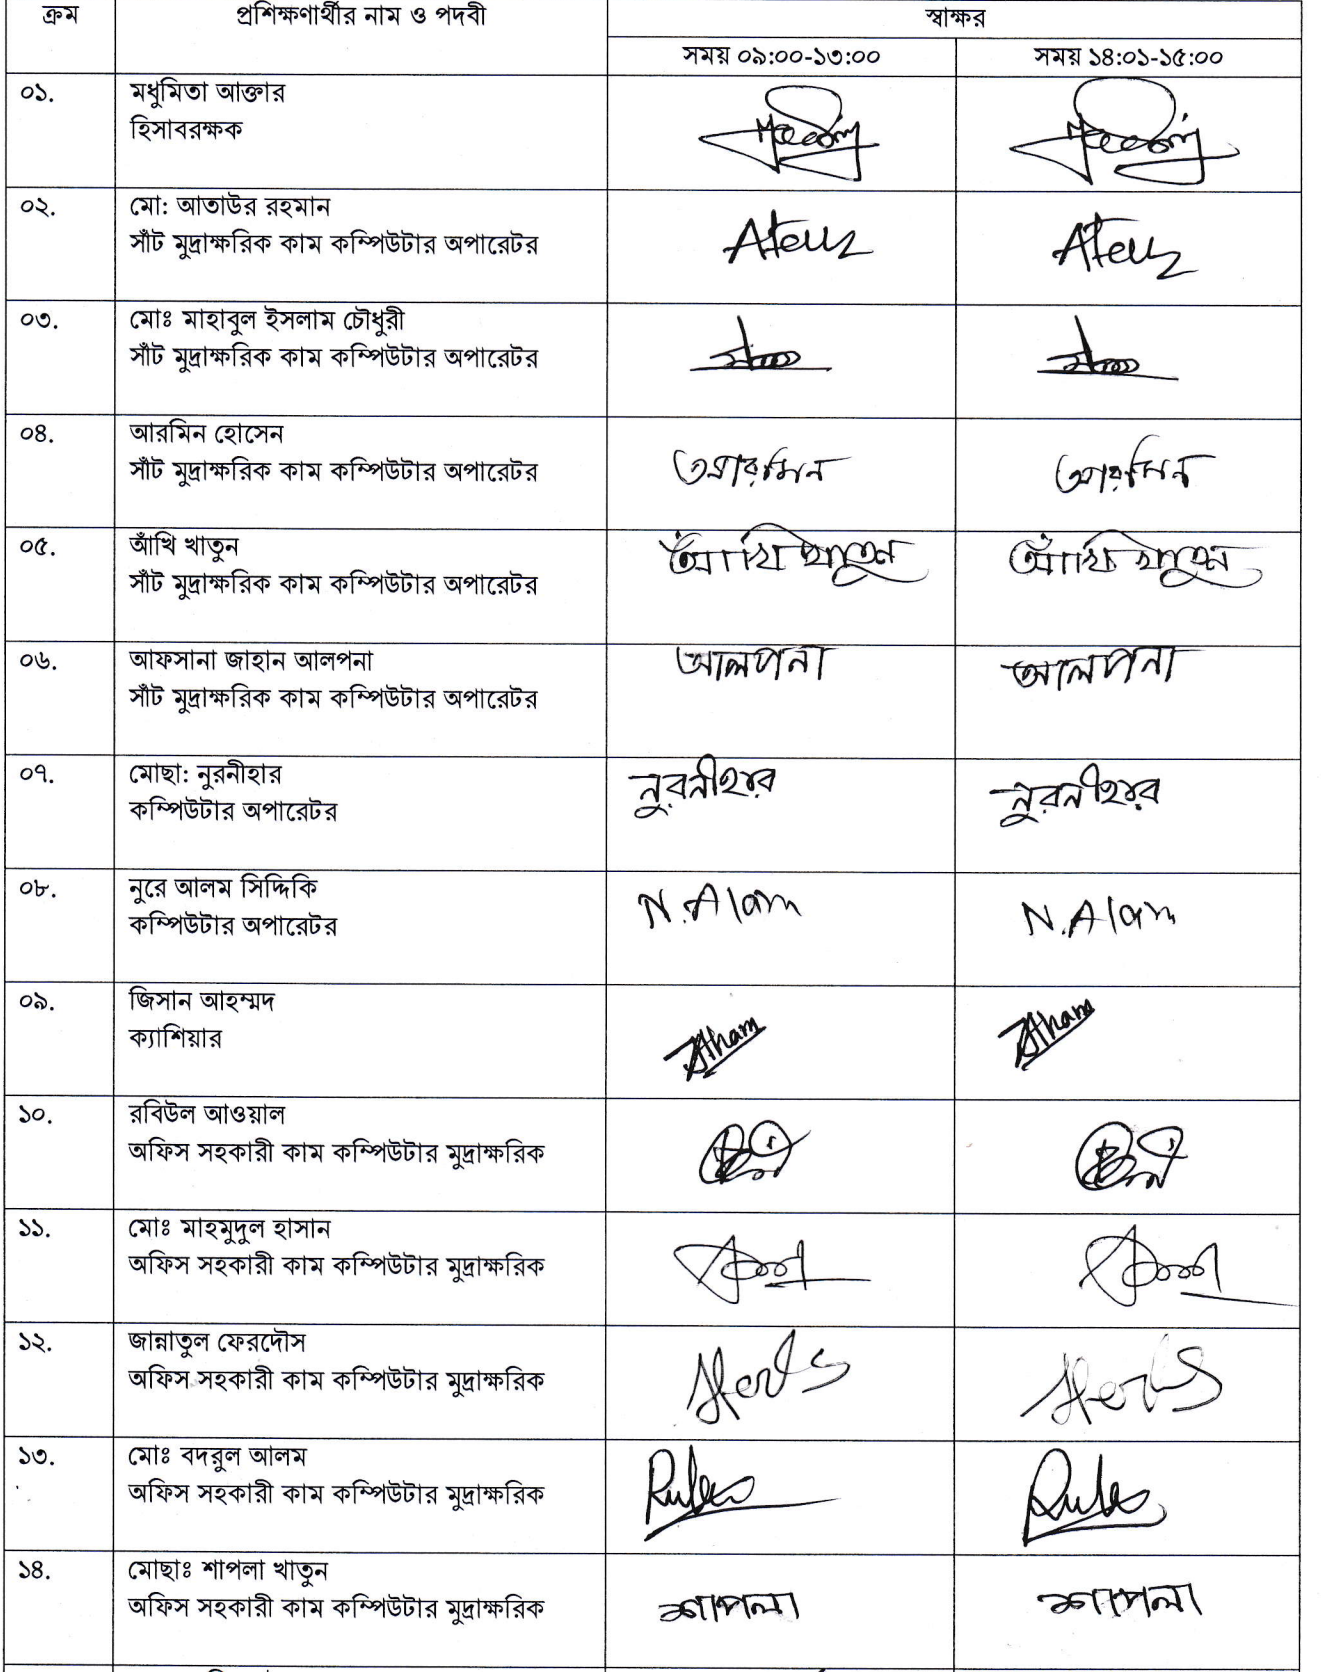 ক্রম প্রশিক্ষণার্থীর নাম ও পদবী স্বাক্ষর
সময় ০৯:00-১৩:00 সময় ১৪:০১-১৫:00
০১. মধুমিতা আক্তার
হিসাবরক্ষক
০২. মো: আতাউর রহমান
সাঁট মুদ্রাক্ষরিক কাম কম্পিউটার অপারেটর
০৩. মোঃ মাহাবুল ইসলাম চৌধুরী
সাঁট মুদ্রাক্ষরিক কাম কম্পিউটার অপারেটর
০৪. আরমিন হোসেন
সাঁট মুদ্রাক্ষরিক কাম কম্পিউটার অপারেটর আরমিন আরমিন
০৫. আঁখি খাতুন আঁখি খাতুন আঁখি খাতুন
সাঁট মুদ্রাক্ষরিক কাম কম্পিউটার অপারেটর
০৬. আফসানা জাহান আলপনা আলপনা আলপনা
সাঁট মুদ্রাক্ষরিক কাম কম্পিউটার অপারেটর
০৭. মোছা: নুরনীহার নুরনীহার নুরনীহার
কম্পিউটার অপারেটর
০৮. নুরে আলম সিদ্দিকি N.Alam N.Alam
কম্পিউটার অপারেটর
০৯. জিসান আহম্মদ
ক্যাশিয়ার
১০. রবিউল আওয়াল
অফিস সহকারী কাম কম্পিউটার মুদ্রাক্ষরিক
১১. মোঃ মাহমুদুল হাসান
অফিস সহকারী কাম কম্পিউটার মুদ্রাক্ষরিক
১২. জান্নাতুল ফেরদৌস
অফিস সহকারী কাম কম্পিউটার মুদ্রাক্ষরিক
১৩. মোঃ বদরুল আলম
অফিস সহকারী কাম কম্পিউটার মুদ্রাক্ষরিক
১৪. মোছাঃ শাপলা খাতুন
অফিস সহকারী কাম কম্পিউটার মুদ্রাক্ষরিক শাপলা শাপলা